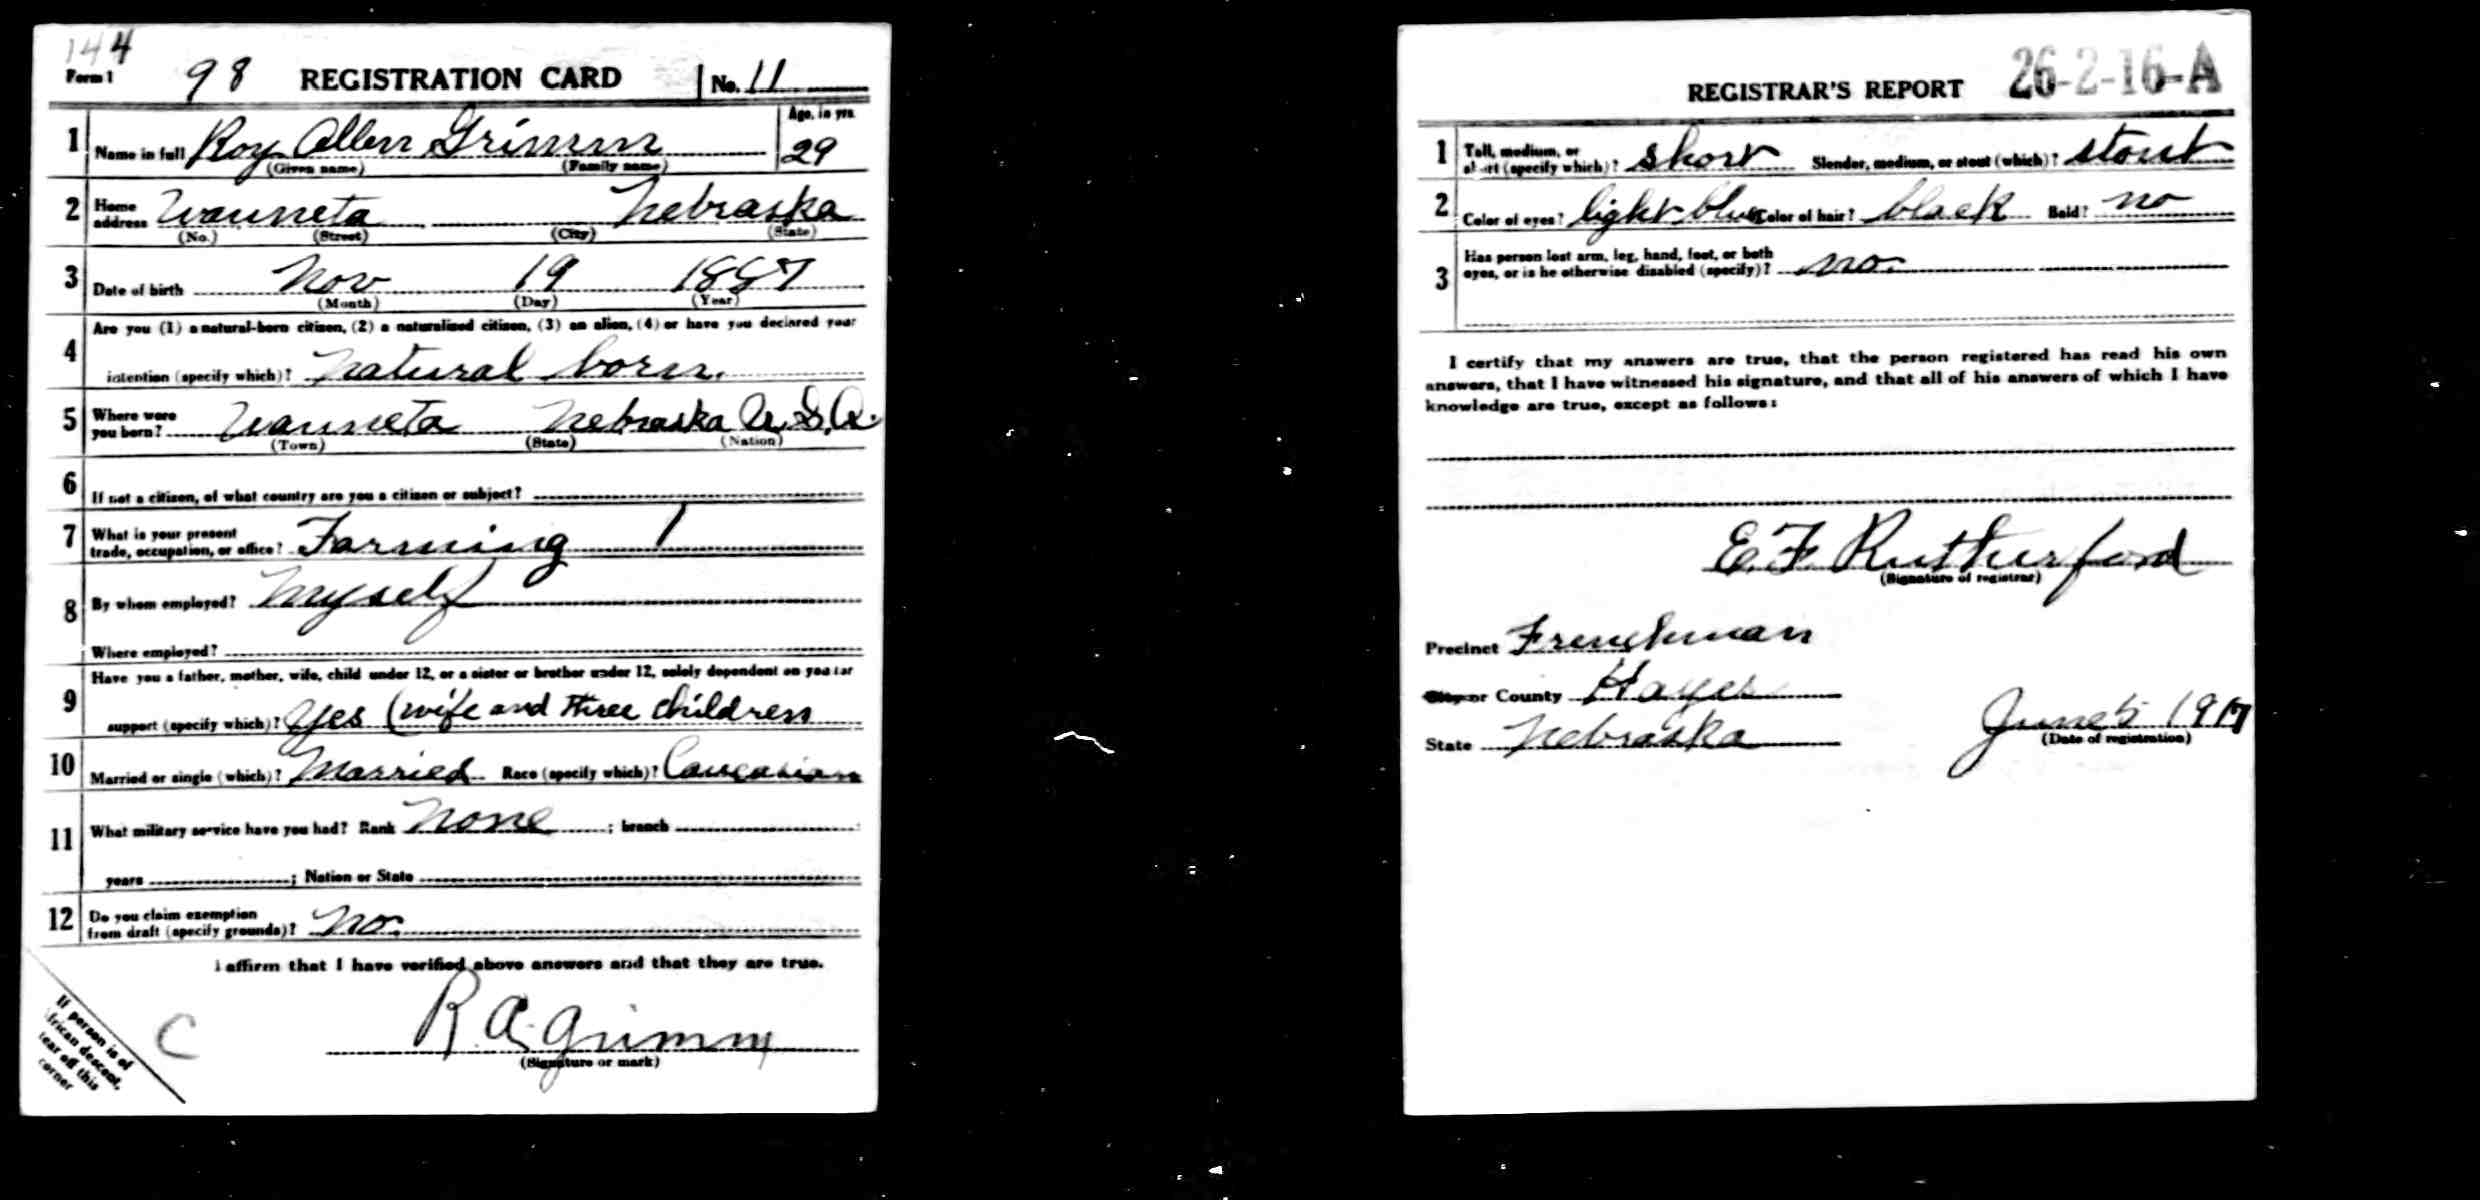 144
Form 1 98 REGISTRATION CARD No. 11
1 Name in full Roy Allen Grimm Age, in yrs. 29
(Given name) (Family name)
2 Home address Wauneta Nebraska
(No.) (Street) (City) (State)
3 Date of birth Nov 19 1887
(Month) (Day) (Year)
4 Are you (1) a natural-born citizen, (2) a naturalized citizen, (3) an alien, (4) or have you declared your
intention (specify which)? Natural born.
5 Where were you born? Wauneta Nebraska U.S.A.
(Town) (State) (Nation)
6 If not a citizen, of what country are you a citizen or subject?
7 What is your present trade, occupation, or office? Farming 1
8 By whom employed? Myself
Where employed?
9 Have you a father, mother, wife, child under 12, or a sister or brother under 12, solely dependent on you for
support (specify which)? Yes (wife and three children
10 Married or single (which)? Married Race (specify which)? Caucasian
11 What military service have you had? Rank None ; branch
years ; Nation or State
12 Do you claim exemption from draft (specify grounds)? No.
I affirm that I have verified above answers and that they are true.
R A Grimm
(Signature or mark)
If person is of
African descent,
tear off this
corner
C
REGISTRAR'S REPORT 26-2-16-A
1 Tall, medium, or short (specify which)? short Slender, medium, or stout (which)? stout
2 Color of eyes? light blue Color of hair? black Bald? no
3 Has person lost arm, leg, hand, foot, or both eyes, or is he otherwise disabled (specify)? no.
I certify that my answers are true, that the person registered has read his own
answers, that I have witnessed his signature, and that all of his answers of which I have
knowledge are true, except as follows:
E. F. Rutherford
(Signature of registrar)
Precinct Frenchman
City or County Hayes
State Nebraska June 5 1917
(Date of registration)